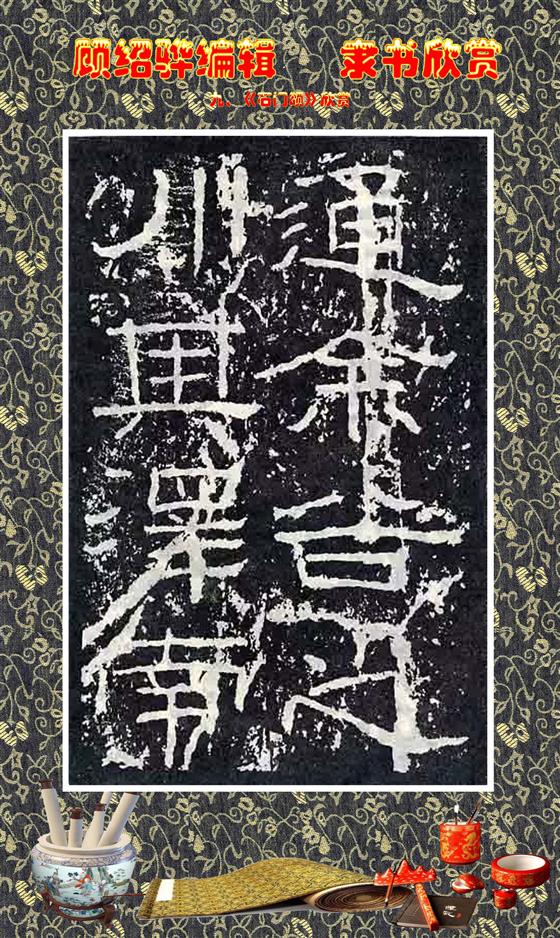 顾绍骅编辑 隶书欣赏
九、《石门颂》欣赏
通余谷之
川其澤南